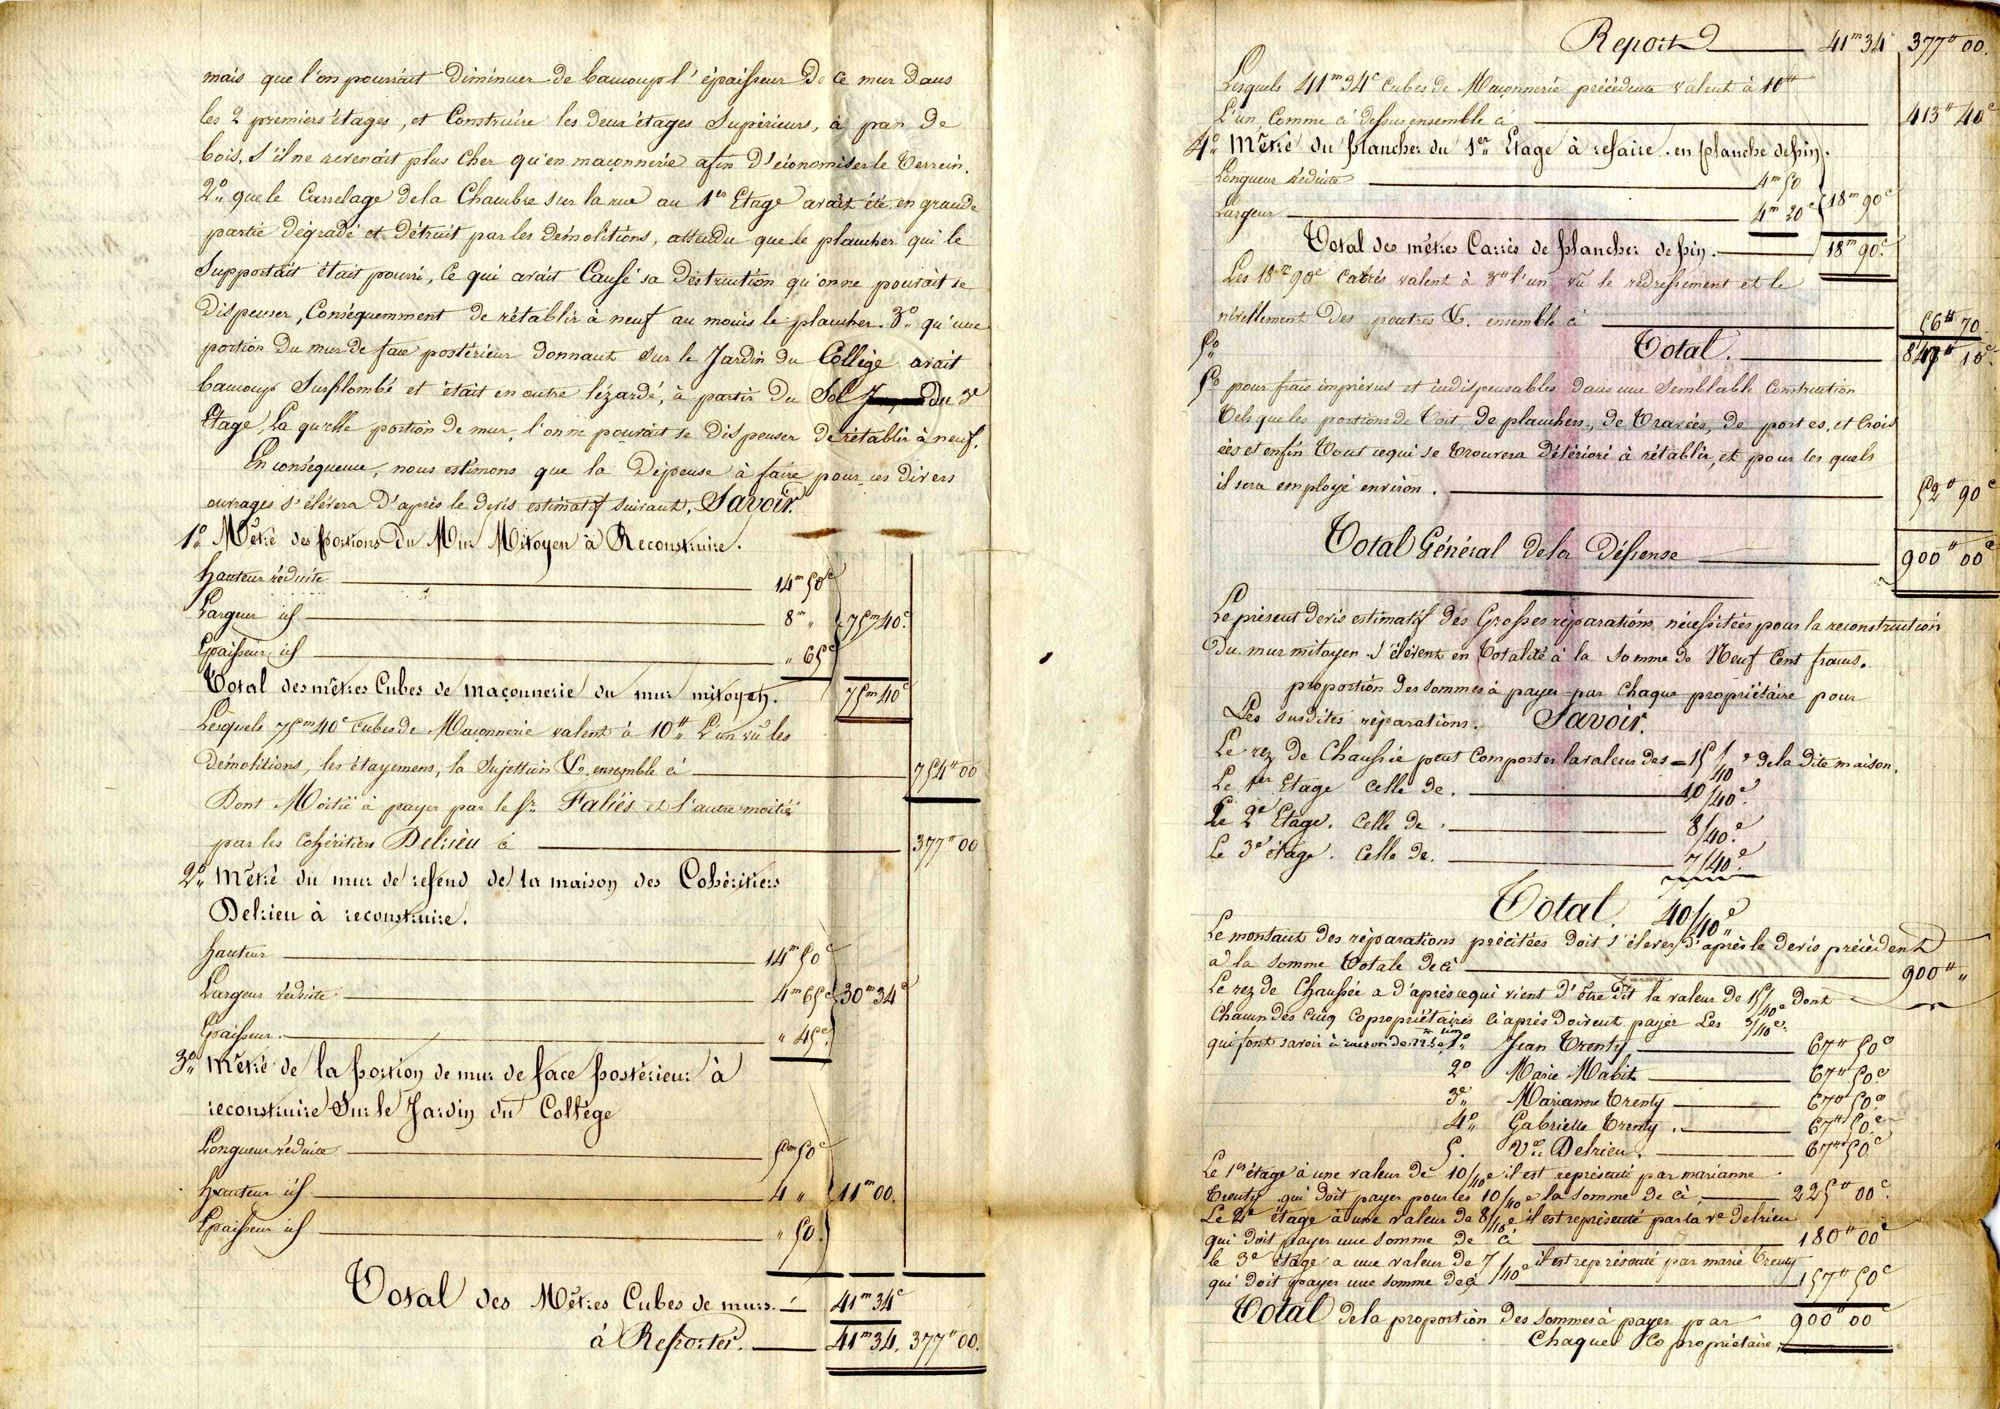 mais que l'on pourrait diminuer de baucoup l'épaisseur de ce mur dans
les 2 premiers étages, et Construire les deux étages Supérieurs, à pan de
bois, s'il ne revenait plus cher qu'en maçonnerie afin d'économiser le terrein.
2° que le Carrelage de la Chambre sur la rue au 1er Etage avait été en grande
partie dégradé et détruit par les démolitions, attendu que le plancher qui le
Supportait était pourri, ce qui avait Causé sa destruction qu'on ne pouvait se
dispenser, Conséquemment de rétablir à neuf au moins le plancher. 3° qu'une
portion du mur de face postérieur donnant sur le Jardin du Collège avait
baucoup Surplombé et était en outre lézardé, à partir du Sol du 3e
Etage, La quelle portion de mur, l'on ne pouvait se dispenser de rétablir à neuf.
En conséquence, nous estimons que la Dépense à faire pour ces divers
ouvrages s'élèvera d'après le devis estimatif suivant, Savoir
1° Métré des portions du Mur Mitoyen à Reconstruire.
hauteur réduite 14m 50c
Largeur id 8m " 75m 40c
Epaisseur id " 65c
Total des mètres Cubes de maçonnerie du mur mitoyen. 75m 40c
Lesquels 75m 40c cubes de Maçonnerie valent à 10tt L'un vû les
démolitions, les étayemens, la Sujettion &c, ensemble ci 754tt 00
Dont Moitié à payer par le Sr. Faliès et l'autre moitié
par les cohéritiers Delrieu ci 377tt 00
2° Métré du mur de refend de la maison des Cohéritiers
Delrieu à reconstruire.
hauteur 14m 50c
Largeur réduite 4m 65c 30m 34c
Epaisseur. " 45c
3° Métré de la portion de mur de face postérieur à
reconstruire Sur le Jardin du Collège
Longueur réduite 5m 50c
hauteur id 4 " 11m 00.
Epaisseur id " 50.
Total des Mètres Cubes de murs. 41m 34c
à Reporter. 41m 34. 377tt 00.
Report 41m 34c 377tt 00.
Lesquels 41m 34c cubes de Maçonnerie précédente valent à 10tt
L'un, Comme ci dessus ensemble ci 413tt 40c
4° Métré du plancher du 1er Etage à refaire en planche de pin.
Longueur réduite 4m 50
Largeur 4m 20c 18m 90c
Total des mètres Carrés de plancher de pin. 18m 90c
Les 18m 90c Carrés valent à 3tt l'un, vû le redressement et le
nivellement des poutres &c. ensemble ci 56tt 70
5° Total. 847tt 10c
5° pour frais imprévus et indispensables dans une Semblable Construction
tels que les portions de toit, de planchers, de travées, de portes, et Crois
ées et enfin tout ce qui se trouvera détérioré à rétablir, et pour les quels
il sera employé environ. 52tt 90c
Total Général de la dépense 900tt 00c
Le présent devis estimatif des Grosses réparations nécessitées pour la reconstruction
du mur mitoyen s'élèvent en totalité à la Somme de Neuf Cent francs.
proportion des sommes à payer par Chaque propriétaire pour
Les susdites réparations. Savoir.
Le rez de Chaussée peut Comporter la valeur des 15/40e de la dite maison.
Le 1er Etage Celle de. 10/40e
Le 2e Etage. Celle de. 8/40e
Le 3e étage. Celle de. 7/40e
Total 40/40e
Le montant des réparations précitées doit s'élever d'après le devis précédent
à la Somme totale de ci 900tt "
Le rez de Chaussée a d'après ce qui vient d'être dit la valeur de 15/40e dont
Chacun des cinq copropriétaires ci après doivent payer Les 3/40e.
qui font savoir à raison de 1° Jean Trenty 67tt 50c
2° Marie Mabit 67tt 50c
3° Marianne Trenty 67tt 50c
4° Gabrielle Trenty. 67tt 50c
5. Ve Delrieu. 67tt 50c
Le 1er étage à une valeur de 10/40e il est représenté par marianne
Trenty qui doit payer pour les 10/40e la somme de ci 225tt 00c
Le 2e étage à une valeur de 8/40e il est représenté par la ve delrieu
qui doit payer une somme de ci 180tt 00c
le 3e étage a une valeur de 7/40e il est représenté par marie trenty
qui doit payer une somme de ci 157tt 50c
Total de la proportion des sommes à payer par 900tt 00
Chaque Co propriétaire.